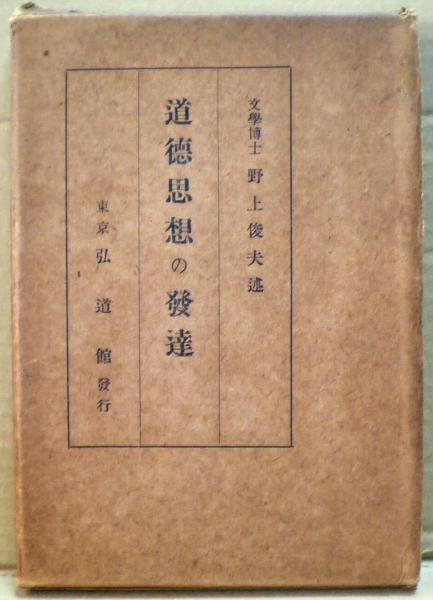 文學博士 野上俊夫述
道德思想の發達
東京 弘道館發行